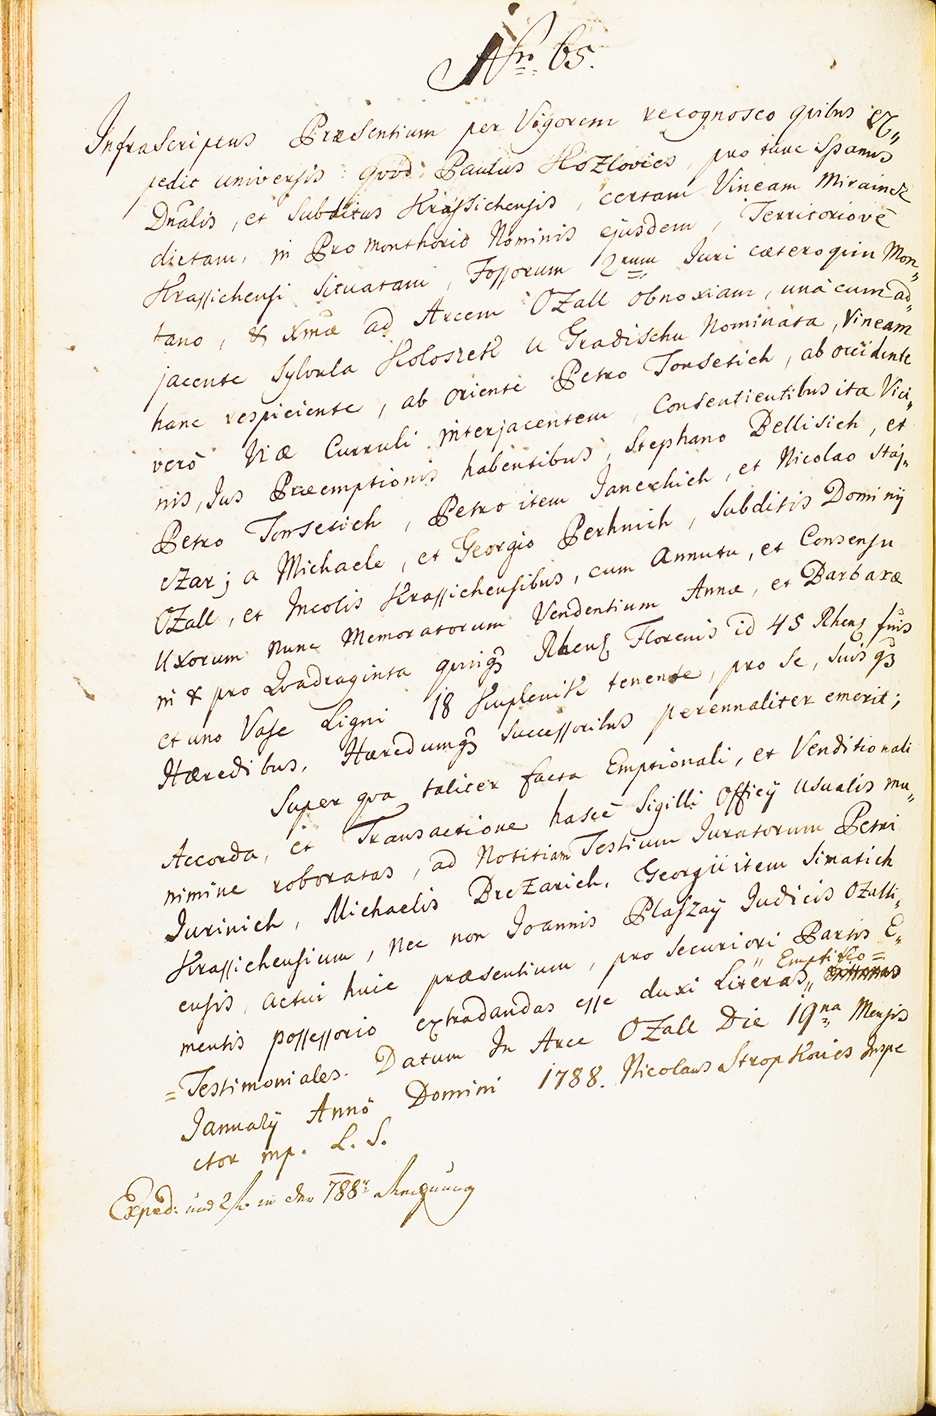 Nro 65.
Infrascriptus Præsentium per Vigorem recognosco quibus ex„
pedit universis: quod Paulus Kozlovics, pro tunc Spanus
Dnalis, et subditus Krassichensis, certam Vineam Miraincz
dictam, in Promonthorio Nominis ejusdem, Territoriove
Krassichensi situatam, Fossorum 2rum Juri cæteroquin Mon„
tano, & Xmæ ad Arcem OZall obnoxiam, unà cum ad„
jacente Sylvula Koloszek u Gradischu Nominata, Vineam
hanc respiciente, ab oriente Petro Tonsetich, ab occidente
verò Viæ Curruli interjacentem, Consentientibus ita Vici„
nis, Jus Præemptionis habentibus, Stephano Bellisich, et
Petro Tonsetich, Petro item Janexhich, et Nicolao Staj„
czar; a Michaele, et Georgio Perhnich, subditis Dominij
OZall, et Incolis Krassichensibus, cum Annutu, et Consensu
Uxorum nunc Memoratorum Vendentium Annæ, et Barbaræ
in & pro Quadraginta quinq3 Rhens Florenis id 45 Rhens fnis
et uno Vase Ligni 18 Kuplenik tenente, pro se, suisq3
Hæredibus, Hæredumq3 successoribus perennaliter emerit;
Super qva taliter facta Emptionali, et Venditionali
Accorda, et Transactione hasce Sigilli Officij Usualis mu„
nimine roboratas, ad Notitiam Testium Juratorum Petri
Jurinich, Michaelis Brezarich, Georgii item Simatich
Krassichensium, nec non Joannis Plaszaij Judicis Ozalli„
ensis, actui huic præsentium, pro securiori Partis E„
mentis possessorio extradandas esse duxi Literas, Emptitio=
=Testimoniales. Datum In Arce OZall Die 19na Mensis
Januarij Annô Domini 1788. Nicolaus Stropkovics Inspe
ctor mp. L. S.
Exped: und in der 788r